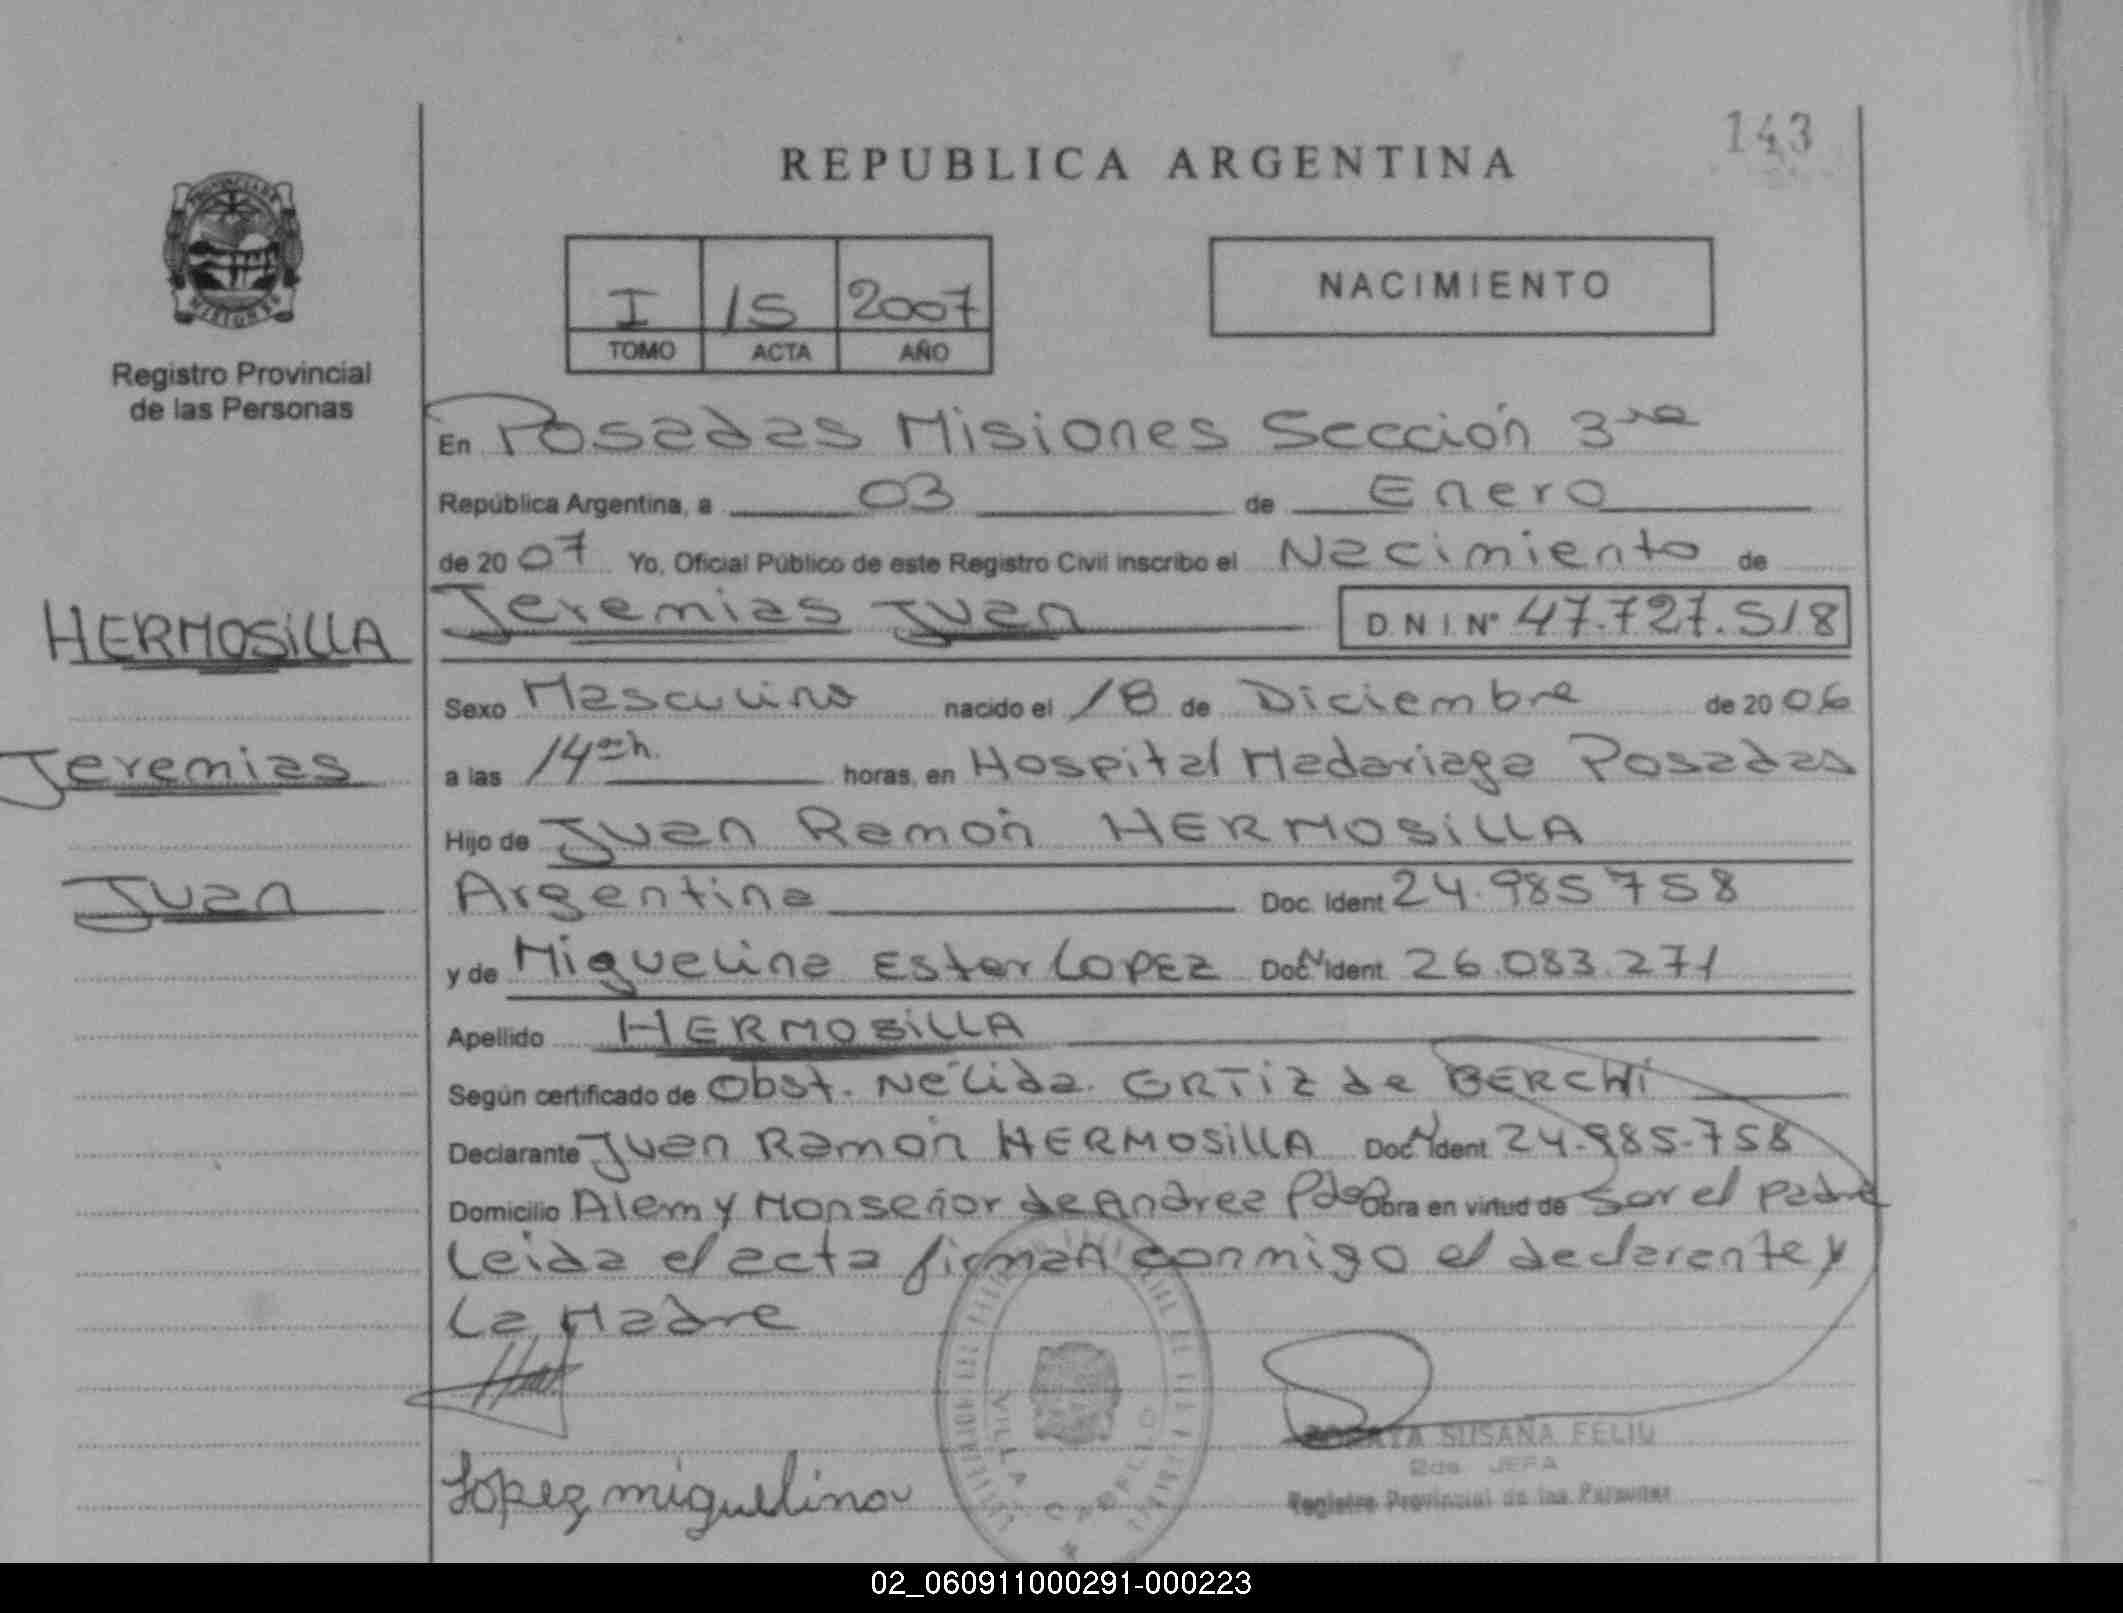 143
REPUBLICA ARGENTINA
I 15 2007
TOMO ACTA AÑO
NACIMIENTO
Registro Provincial
de las Personas
En Posadas Misiones Sección 3ra
República Argentina, a 03 de Enero
de 2007 Yo, Oficial Público de este Registro Civil inscribo el Nacimiento de
HERMOSILLA
Jeremias Juan D N I Nº 47.727.518
Sexo Masculino nacido el 18 de Diciembre de 2006
Jeremias
a las 14 h. horas, en Hospital Madariaga Posadas
Hijo de Juan Ramón HERMOSILLA
Juan
Argentina Doc. Ident 24.985758
y de Miguelina Ester LOPEZ Doc Ident. 26.083.271
Apellido HERMOSILLA
Según certificado de Obst. Nélida ORTIZ de BERCHI
Declarante Juan Ramón HERMOSILLA Doc Ident 24.985.758
Domicilio Alem y Monseñor de Andrea Pdas Obra en virtud de Ser el padre
Leida el acta firman conmigo el declarante y
La Madre
Lopez miguelina
SUSANA FELIU
2da. JEFA
Registro Provincial de las Personas
VILLA CABELLO
02_060911000291-000223